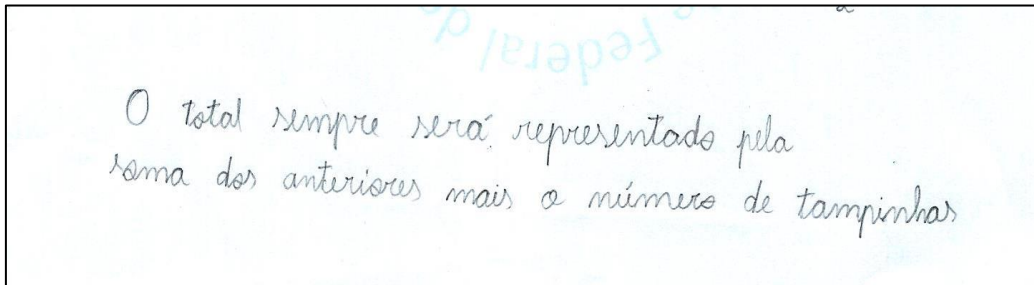 Federal d
O total sempre será representado pela
soma dos anteriores mais o número de tampinhas